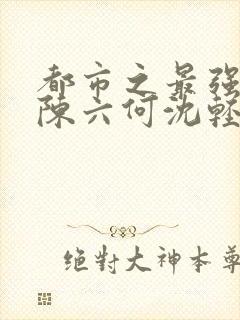 都市之最强
陈六何沈轻
绝对大神本尊